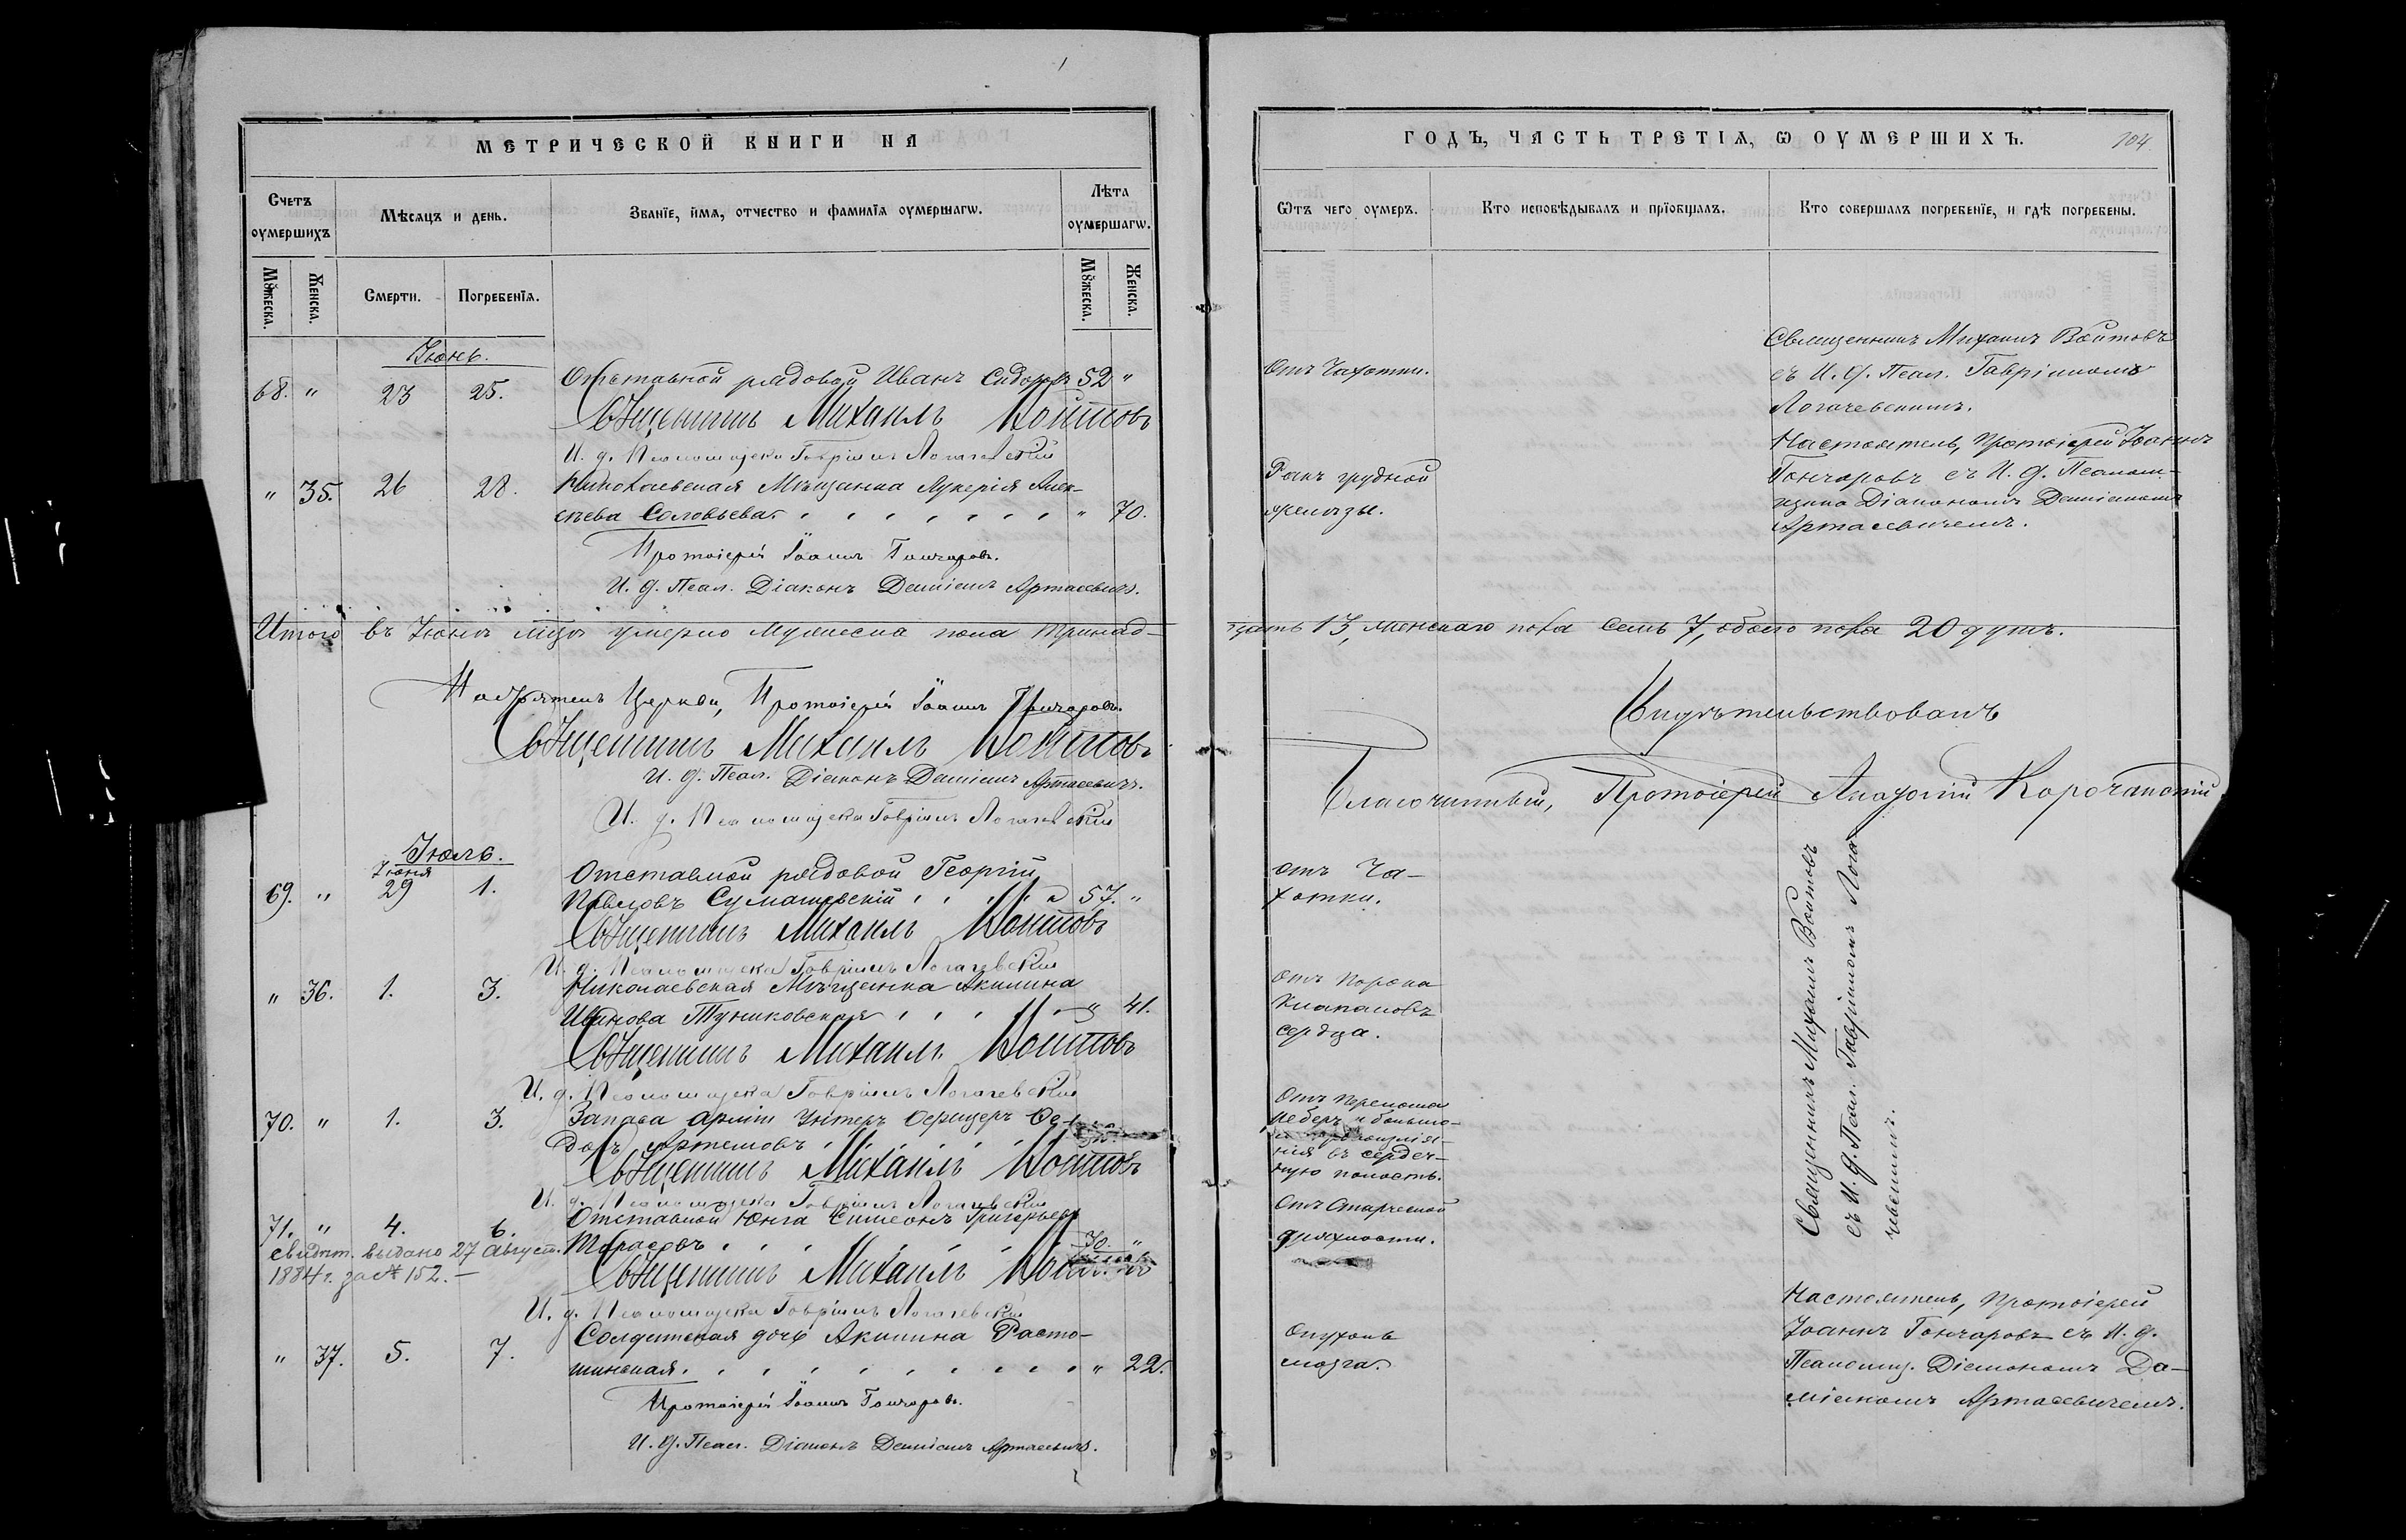 МЕТРИЧЕСКОЙ КНИГИ НА
Счетъ оумершихъ
Мѣсяцъ и день.
Званїе, имѧ, отчество и фамилїѧ оумершагѡ.
Лѣта оумершагѡ.
Мꙋжеска.
Женска.
Смерти.
Погребенїѧ.
Мꙋжеска.
Женска.
Іюнь.
68. " 23 25. Отставной рядовой Иванъ Сидоровъ 52 "
Священникъ Михаилъ Войтовъ
И. д. Псаломщика Гавріилъ Логачевскій
" 35. 26 28. Николаевская Мѣщанка Лукерія Алек-
сѣева Соловьева. " 70.
Протоіерей Іоаннъ Гончаровъ.
И. д. Псал. Діаконъ Даміанъ Артасевичъ.
Итого въ Іюнѣ мѣсяцѣ умерло мужеска пола тринад-
Настоятель Церкви, Протоіерей Іоаннъ Гончаровъ.
Священникъ Михаилъ Войтовъ
И. д. Псал. Діаконъ Даміанъ Артасевичъ.
И. д. Псаломщика Гавріилъ Логачевскій
Іюль.
Іюня
69. " 29 1. Отставной рядовой Георгій
Павловъ Сумашевскій 57. "
Священникъ Михаилъ Войтовъ
И. д. Псаломщика Гавріилъ Логачевскій
" 36. 1. 3. Николаевская Мѣщанка Акилина
Иванова Туниковская " 41.
Священникъ Михаилъ Войтовъ
И. д. Псаломщика Гавріилъ Логачевскій
70. " 1. 3. Запаса арміи Унтеръ Офицеръ Ѳе-
доръ Артемовъ
Священникъ Михаилъ Войтовъ
И. д. Псаломщика Гавріилъ Логачевскій
71. " 4. 6. Отставной Юнга Симеонъ Григорьевъ
Тарасовъ 70. "
свидѣт. выдано 27 Август.
1884 г. за № 152. —
Священникъ Михаилъ Войтовъ
И. д. Псаломщика Гавріилъ Логачевскій
" 37. 5. 7. Солдатская дочь Акилина Расто-
шинская. " 22.
Протоіерей Іоаннъ Гончаровъ.
И. д. Псал. Діаконъ Даміанъ Артасевичъ.
ГОДЪ, ЧАСТЬ ТРЕТІѦ, Ѡ ОУМЕРШИХЪ.
104
Ѿтъ чего оумеръ.
Кто исповѣдывалъ и прїобщалъ.
Кто совершалъ погребенїе, и гдѣ погребены.
Отъ Чахотки.
Священникъ Михаилъ Войтовъ
съ И. д. Псал. Гавріиломъ
Логачевскимъ.
Ракъ грудной
железы.
Настоятель, Протоіерей Іоаннъ
Гончаровъ съ И. д. Псалом-
щика Діакономъ Даміаномъ
Артасевичемъ.
цать 13, женскаго пола семь 7, обоего пола 20 душъ.
Свидѣтельствовалъ
Благочинный, Протоіерей
отъ Ча-
хотки.
Отъ порока
клапановъ
сердца.
Отъ перелома
реберъ и
въ сердеч-
ную полость.
Отъ старческой
дряхлости.
Священникъ Михаилъ Войтовъ
съ И. д. Псал. Гавріиломъ Лога-
чевскимъ.
Опухоль
мозга.
Настоятель, Протоіерей
Іоаннъ Гончаровъ съ И. д.
Псаломщ. Діакономъ Да-
міаномъ Артасевичемъ.